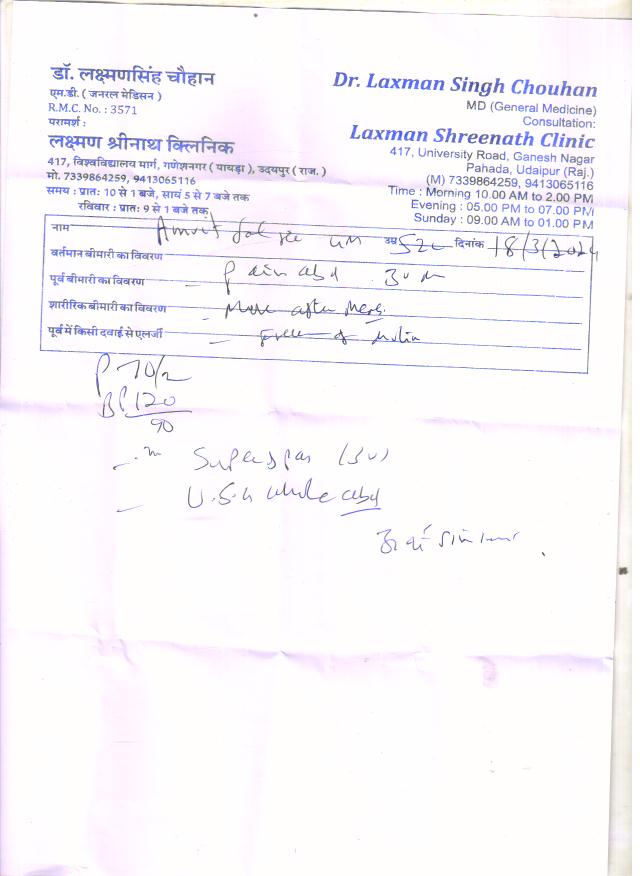 डॉ. लक्ष्मणसिंह चौहान
एम.डी. ( जनरल मेडिसन )
R.M.C. No. : 3571
परामर्श :
लक्ष्मण श्रीनाथ क्लिनिक
417, विश्वविद्यालय मार्ग, गणेशनगर ( पायड़ा ), उदयपुर ( राज. )
मो. 7339864259, 9413065116
समय : प्रातः 10 से 1 बजे, सायं 5 से 7 बजे तक
रविवार : प्रातः 9 से 1 बजे तक
Dr. Laxman Singh Chouhan
MD (General Medicine)
Consultation:
Laxman Shreenath Clinic
417, University Road, Ganesh Nagar
Pahada, Udaipur (Raj.)
(M) 7339864259, 9413065116
Time : Morning 10.00 AM to 2.00 PM
Evening : 05.00 PM to 07.00 PM
Sunday : 09.00 AM to 01.00 PM
नाम Amrit उम्र 52 दिनांक 18/3/2024
वर्तमान बीमारी का विवरण
पूर्व बीमारी का विवरण Pain abd
शारीरिक बीमारी का विवरण - More after
पूर्व में किसी दवाई से एलर्जी -
P 70/
BP 120
90
- U.S.G whole abd